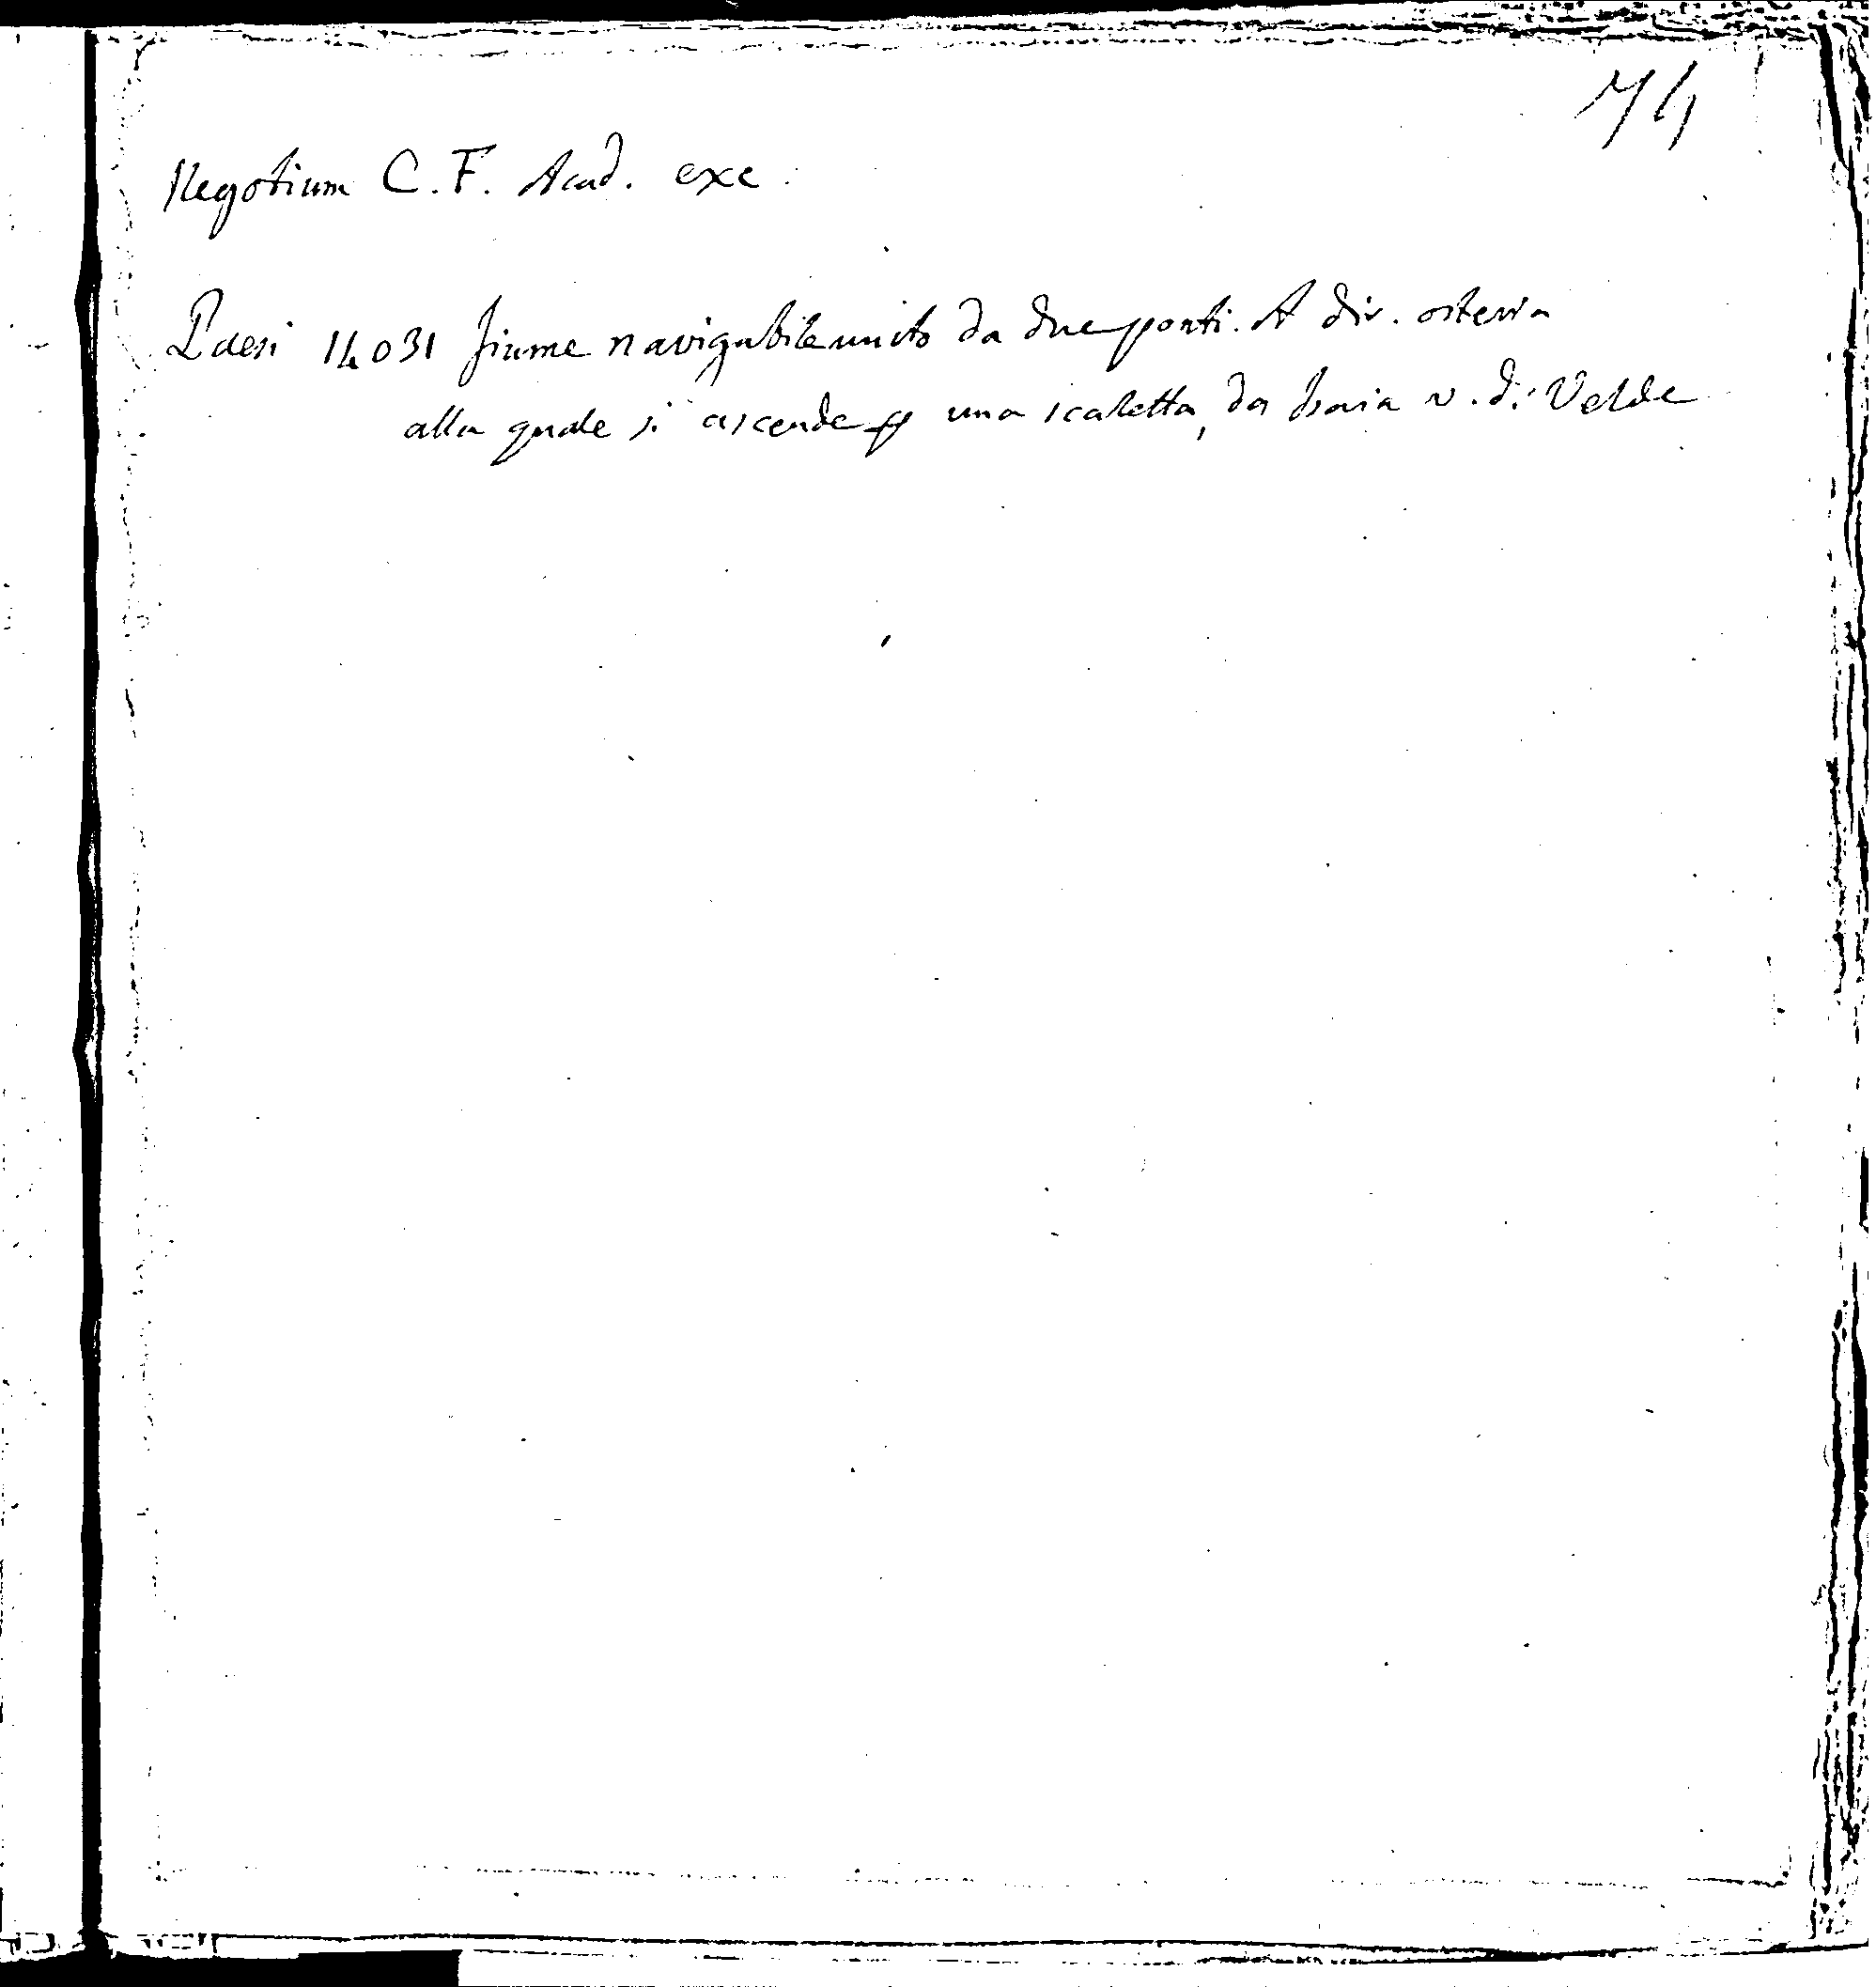 74
Negotium C. F. Acad. exc.
Paesi 14031 fiume navigabile unito da due ponti. A dir. osteria
alla quale si ascende p una scaletta, da Isaia v. d. Velde